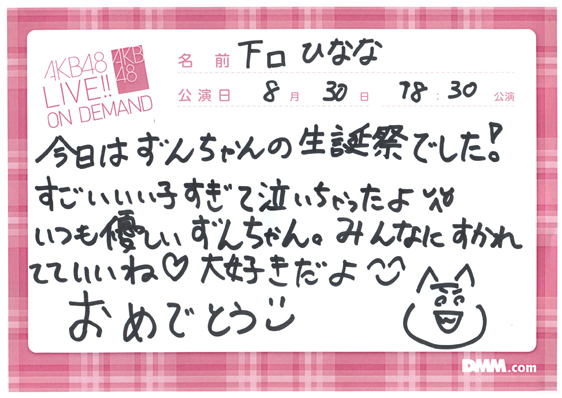 AKB48
LIVE!!
ON DEMAND
AKB
48
名前 下口ひなな
公演日 8月30日 18:30公演
今日はずんちゃんの生誕祭でした!
すごいいい子すぎて泣いちゃったよ
いつも優しいずんちゃん。みんなにすかれ
てていいね♡大好きだよ
おめでとう
DMM.com